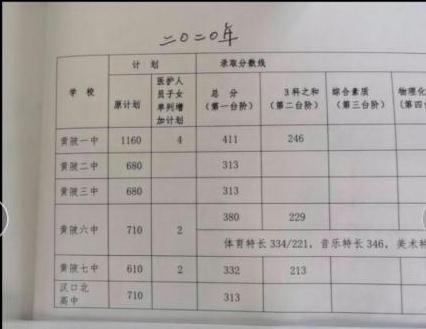 二〇二〇年
学 校 计 划 录取分数线
原计划 医护人员子女单列增加计划 总 分（第一台阶） 3科之和（第二台阶） 综合素质（第三台阶） 物理化
黄陂一中 1160 4 411 246
黄陂二中 680 313
黄陂三中 680 313
黄陂六中 710 2 380 229
体育特长 334/221，音乐特长 346，美术特
黄陂七中 610 2 332 213
汉口北高中 710 313